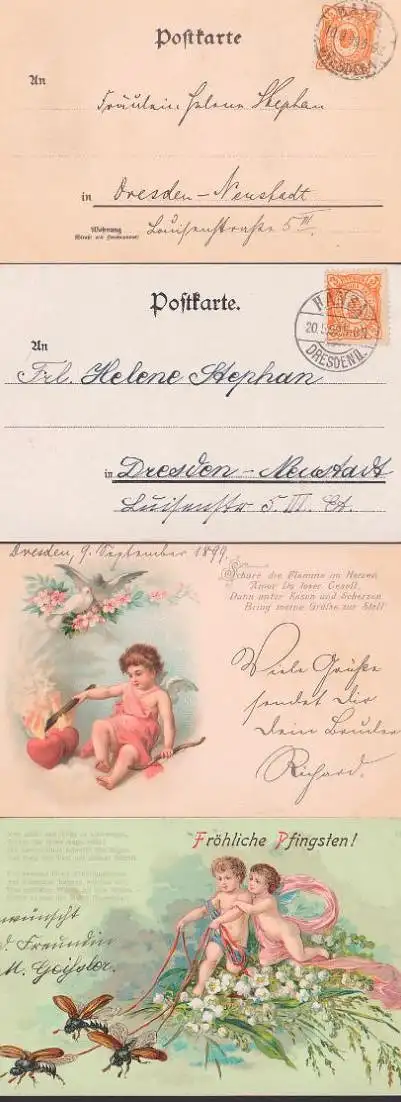 HANSA
DRESDEN
Postkarte
An
Fräulein Helene Stephan
in Dresden-Neustadt
Wohnung
(Straße und Hausnummer)
Louisenstraße 5 III
Postkarte.
HANSA
DRESDEN
An
Frl. Helene Stephan
in Dresden-Neustadt
Luisenstr. 5 III. Et.
Dresden, 9. September 1899.
Schüre die Flamme im Herzen
Amor Du loser Gesell,
Dann unter Kosen und Scherzen
Bring meine Grüße zur Stell
Viele Grüße
sendet Dir
Dein Bruder
Richard.
Fröhliche Pfingsten!
wünscht
Freundin
M. Geißler.